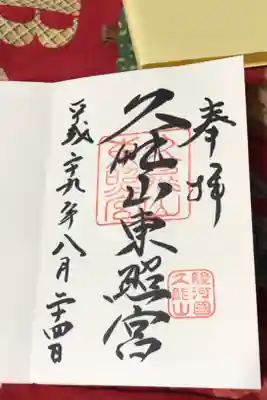 奉拝
久能山東照宮
平成二十九年八月二十四日
駿河國
久能山
B